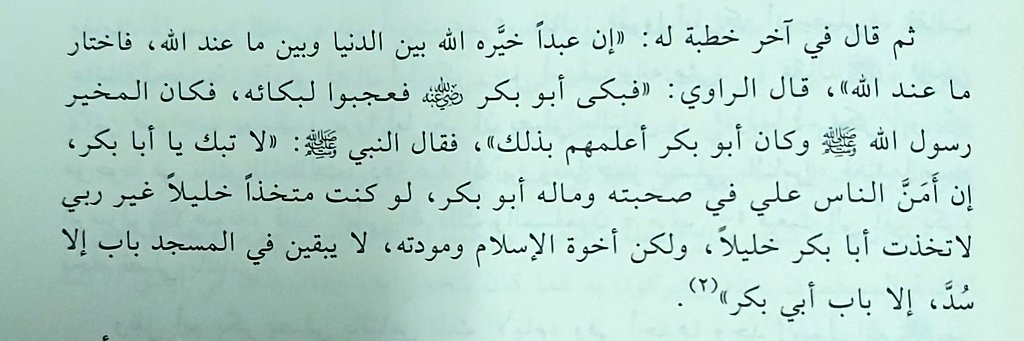 ثم قال في آخر خطبة له: «إن عبداً خيَّره الله بين الدنيا وبين ما عند الله، فاختار
ما عند الله»، قال الراوي: «فبكى أبو بكر رضي الله عنه فعجبوا لبكائه، فكان المخير
رسول الله ﷺ وكان أبو بكر أعلمهم بذلك»، فقال النبي ﷺ: «لا تبك يا أبا بكر،
إن أَمَنَّ الناس علي في صحبته وماله أبو بكر، لو كنت متخذاً خليلاً غير ربي
لاتخذت أبا بكر خليلاً، ولكن أخوة الإسلام ومودته، لا يبقين في المسجد باب إلا
سُدَّ، إلا باب أبي بكر»(٢).